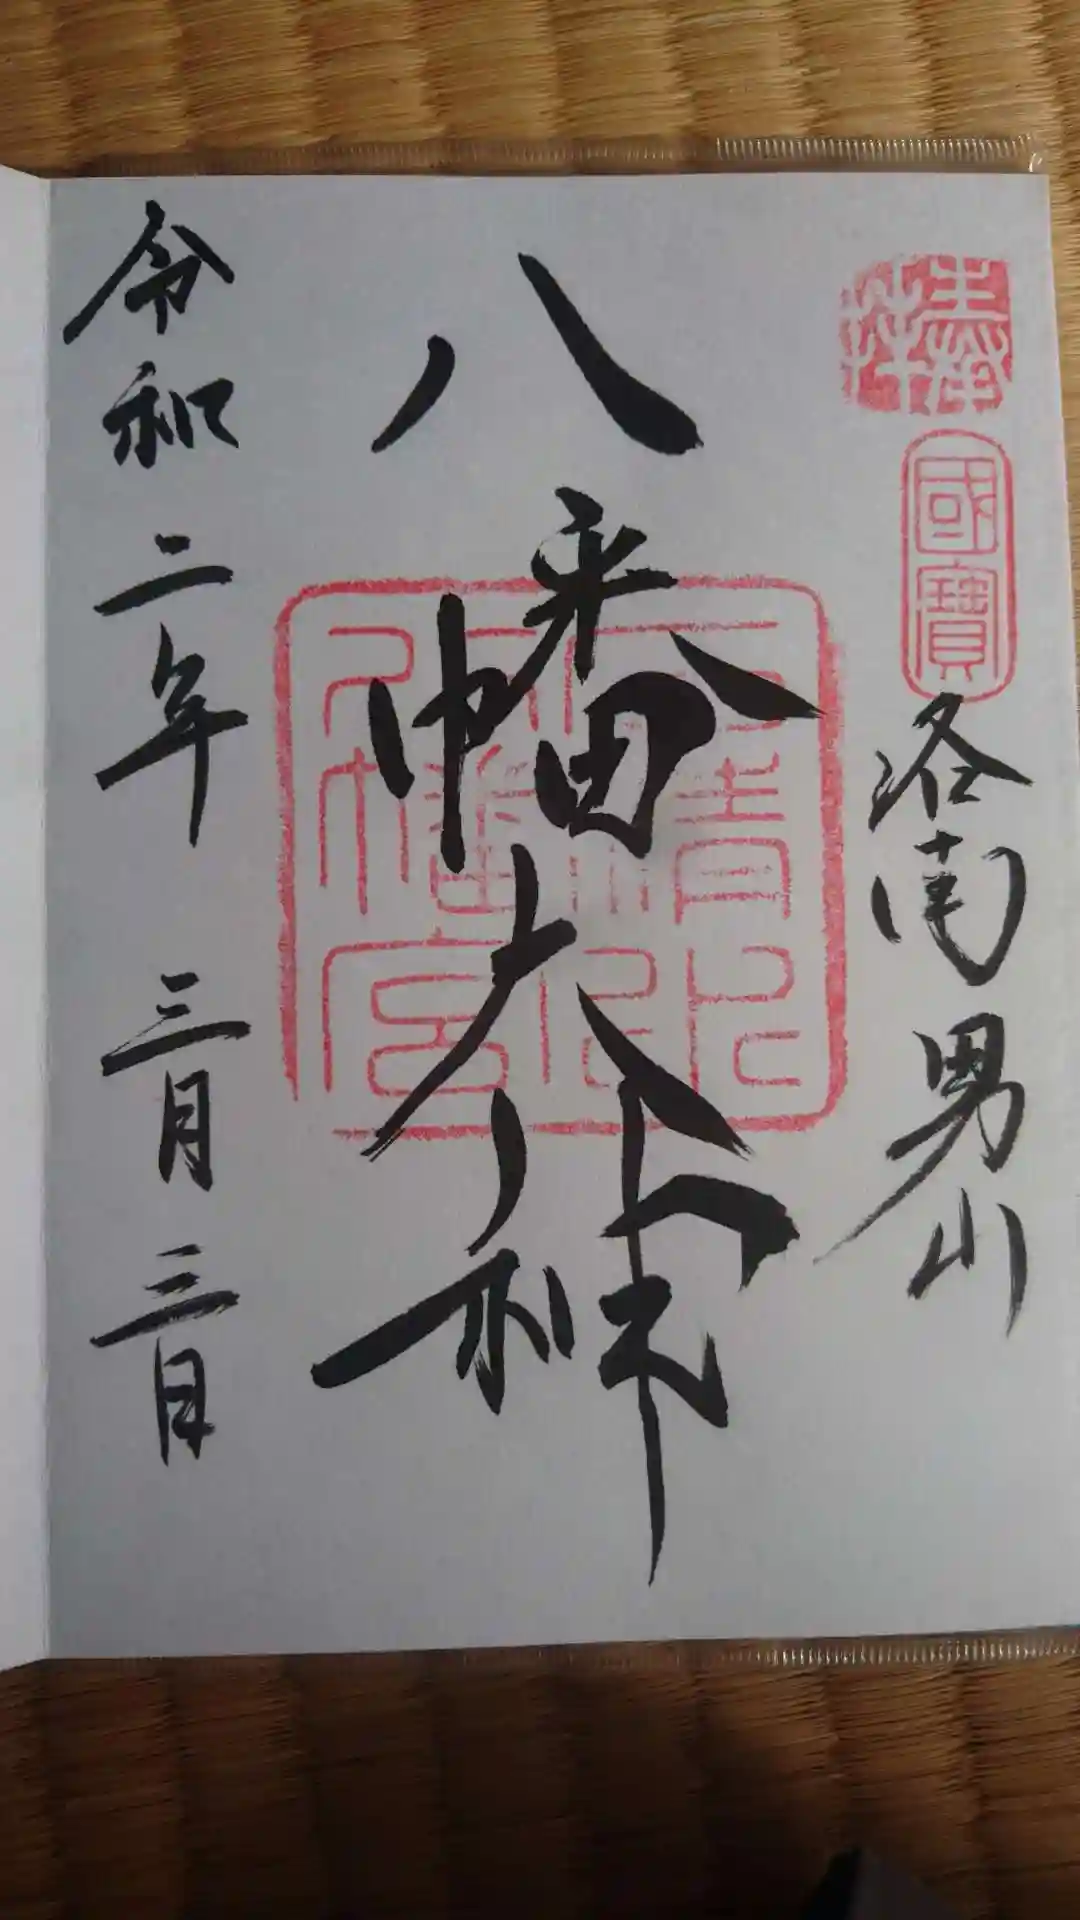 奉拝
國寶
洛南男山
八幡大神
八幡宮
令和二年三月三日